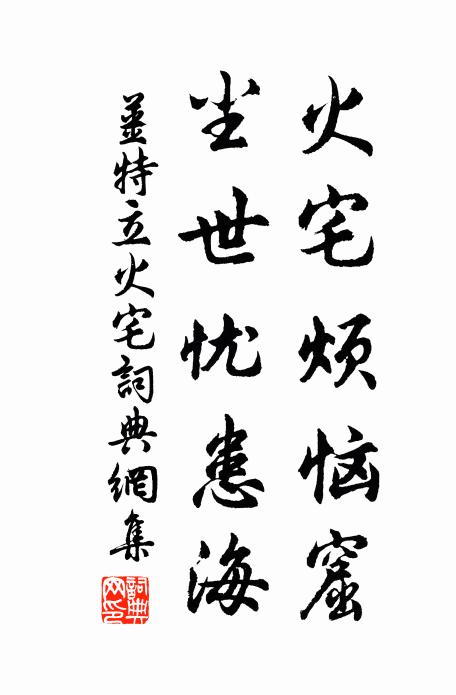 火宅烦恼窟
尘世忧患海
姜特立火宅詞典網集
詞典網印